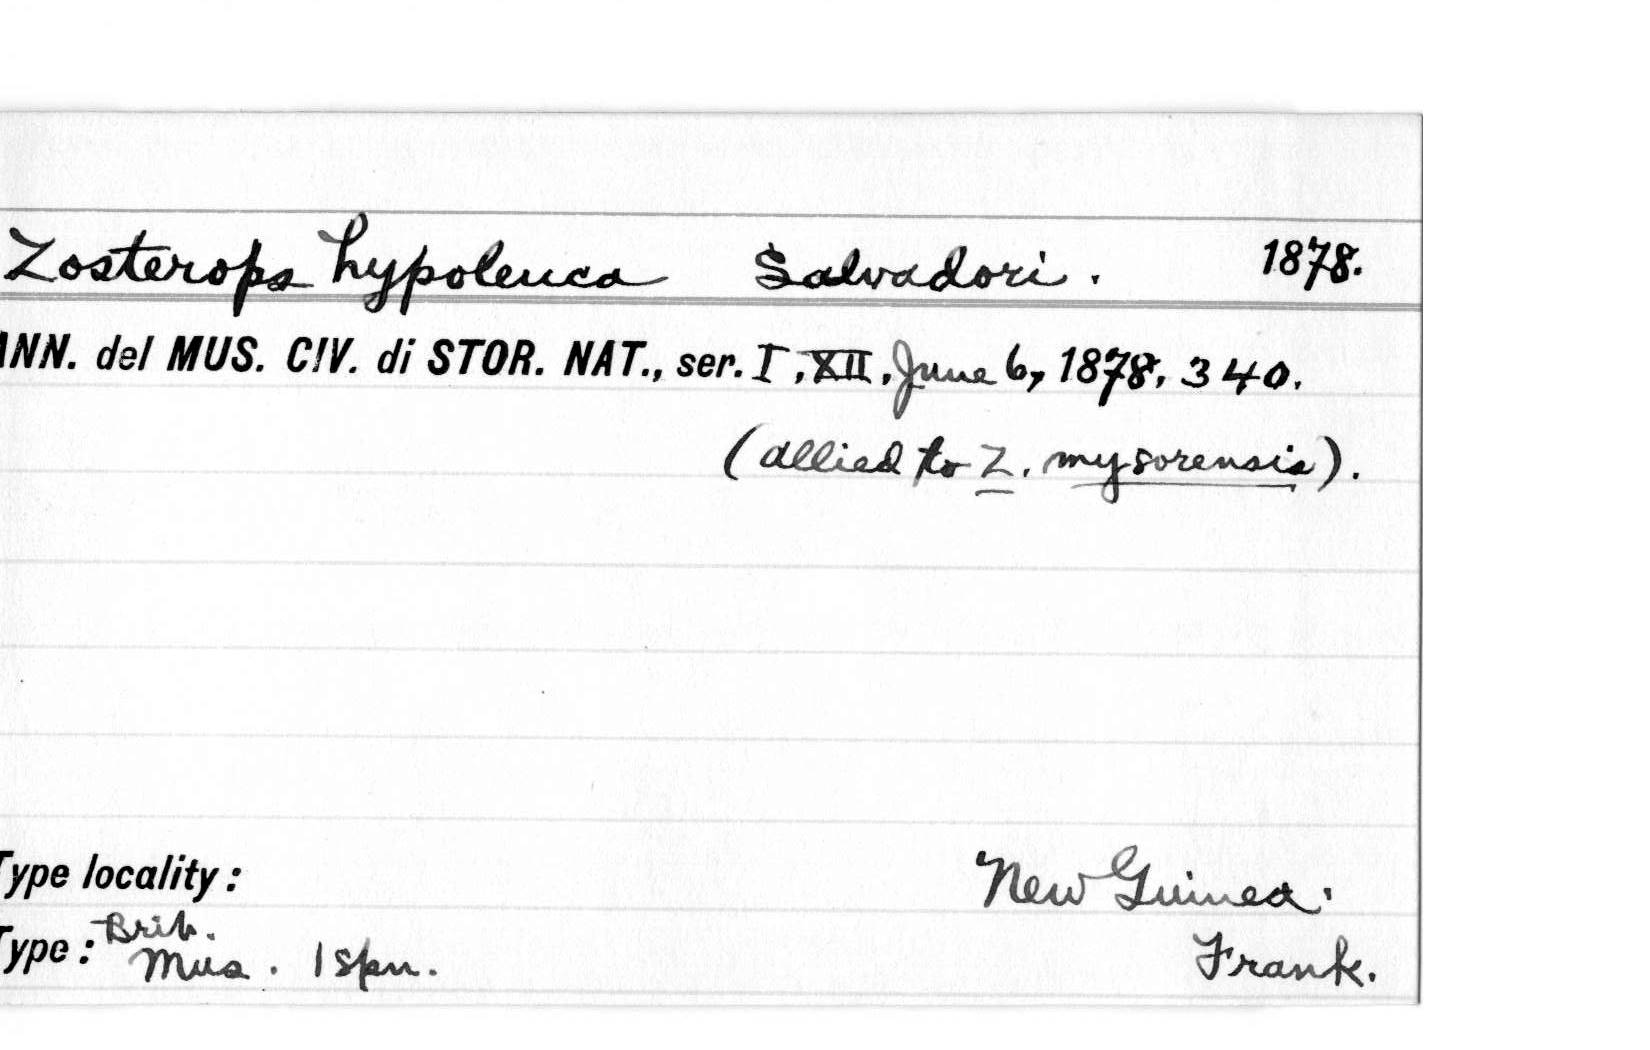 Zosterops hypoleuca Salvadori. 1878.
ANN. del MUS. CIV. di STOR. NAT., ser. I, XII, June 6, 1878, 340.
(allied to Z. mysorensis).
Type locality: New Guinea.
Type: Brit. Mus. 1 spn. Frank.